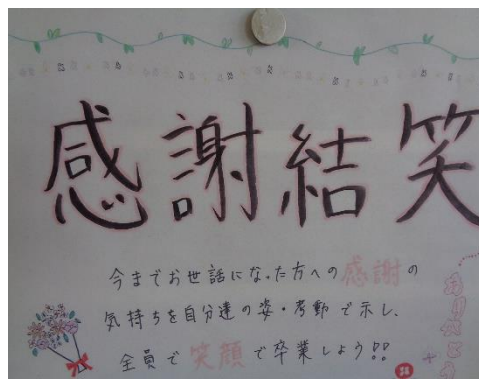 感謝結笑
今までお世話になった方への感謝の
気持ちを自分達の姿・考動で示し、
全員で笑顔で卒業しよう!!
ありがとう